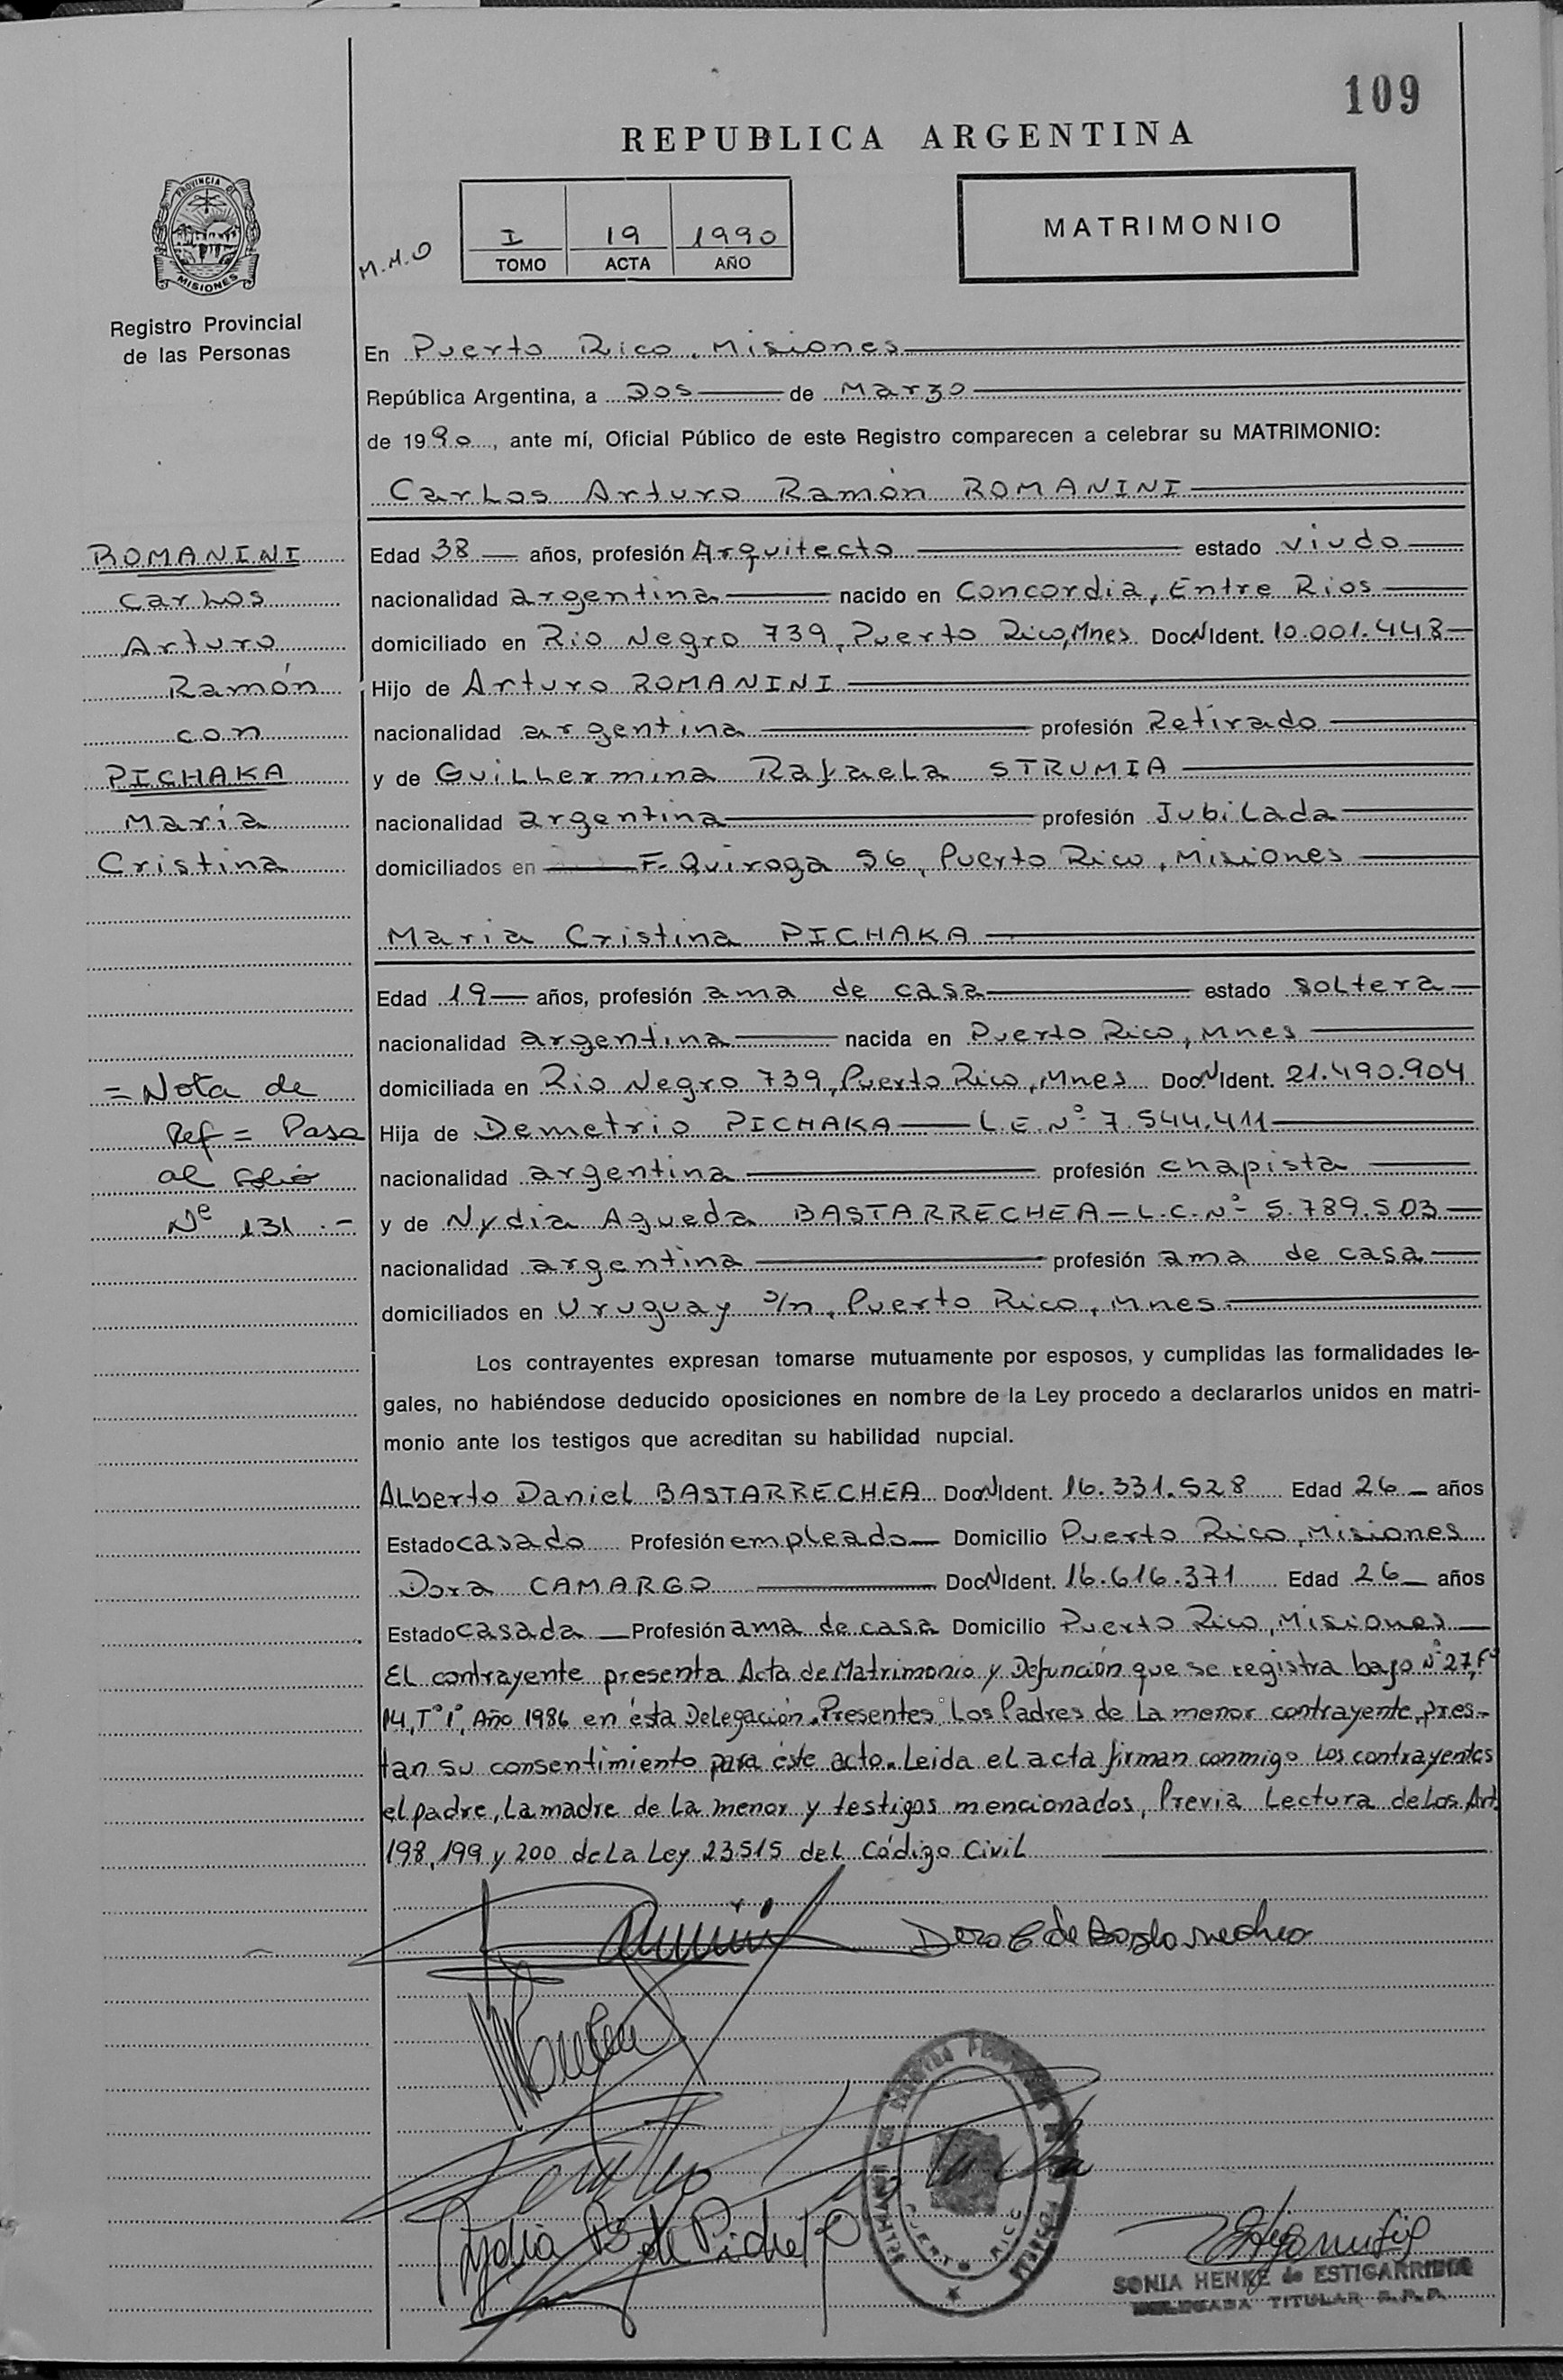 109
REPUBLICA ARGENTINA
PROVINCIA DE
MISIONES
Registro Provincial
de las Personas
M.M.O
I 19 1990
TOMO ACTA AÑO
MATRIMONIO
En Puerto Rico, Misiones
República Argentina, a Dos de Marzo
de 1990, ante mí, Oficial Público de este Registro comparecen a celebrar su MATRIMONIO:
Carlos Arturo Ramón ROMANINI
ROMANINI
Carlos
Arturo
Ramón
con
PICHAKA
María
Cristina
Edad 38 años, profesión Arquitecto estado viudo
nacionalidad argentina nacido en Concordia, Entre Rios
domiciliado en Rio Negro 739, Puerto Rico, Mnes. Doc. N Ident. 10.001.448
Hijo de Arturo ROMANINI
nacionalidad argentina profesión Retirado
y de Guillermina Rafaela STRUMIA
nacionalidad argentina profesión Jubilada
domiciliados en F. Quiroga 56, Puerto Rico, Misiones
Maria Cristina PICHAKA
Edad 19 años, profesión ama de casa estado soltera
nacionalidad argentina nacida en Puerto Rico, Mnes
domiciliada en Rio Negro 739, Puerto Rico, Mnes Doc. N Ident. 21.490.904
Hija de Demetrio PICHAKA L.E. Nº 7.544.411
nacionalidad argentina profesión chapista
y de Nydia Agueda BASTARRECHEA - L.C. Nº 5.789.503
nacionalidad argentina profesión ama de casa
domiciliados en Uruguay s/n, Puerto Rico, Mnes
= Nota de
Ref = Pasa
al Folio
Nº 131.-
Los contrayentes expresan tomarse mutuamente por esposos, y cumplidas las formalidades le-
gales, no habiéndose deducido oposiciones en nombre de la Ley procedo a declararlos unidos en matri-
monio ante los testigos que acreditan su habilidad nupcial.
Alberto Daniel BASTARRECHEA Doc. N Ident. 16.331.528 Edad 26 años
Estado casado Profesión empleado Domicilio Puerto Rico, Misiones
Dora CAMARGO Doc. N Ident. 16.616.371 Edad 26 años
Estado casada Profesión ama de casa Domicilio Puerto Rico, Misiones
El contrayente presenta Acta de Matrimonio y Defunción que se registra bajo Nº 27, Fº
14, Tº 1º, Año 1986 en ésta Delegación. Presentes Los Padres de La menor contrayente, pres-
tan su consentimiento para éste acto. Leida el acta firman conmigo los contrayentes
el padre, La madre de La menor y testigos mencionados, Previa Lectura de Los Art.
198, 199 y 200 de La Ley 23515 del Código Civil
Dora C de Bastarrechea
Nydia B de Pichaka
PUERTO RICO
SONIA HENKE de ESTIGARRIBIA
DELEGADA TITULAR R.P.P.